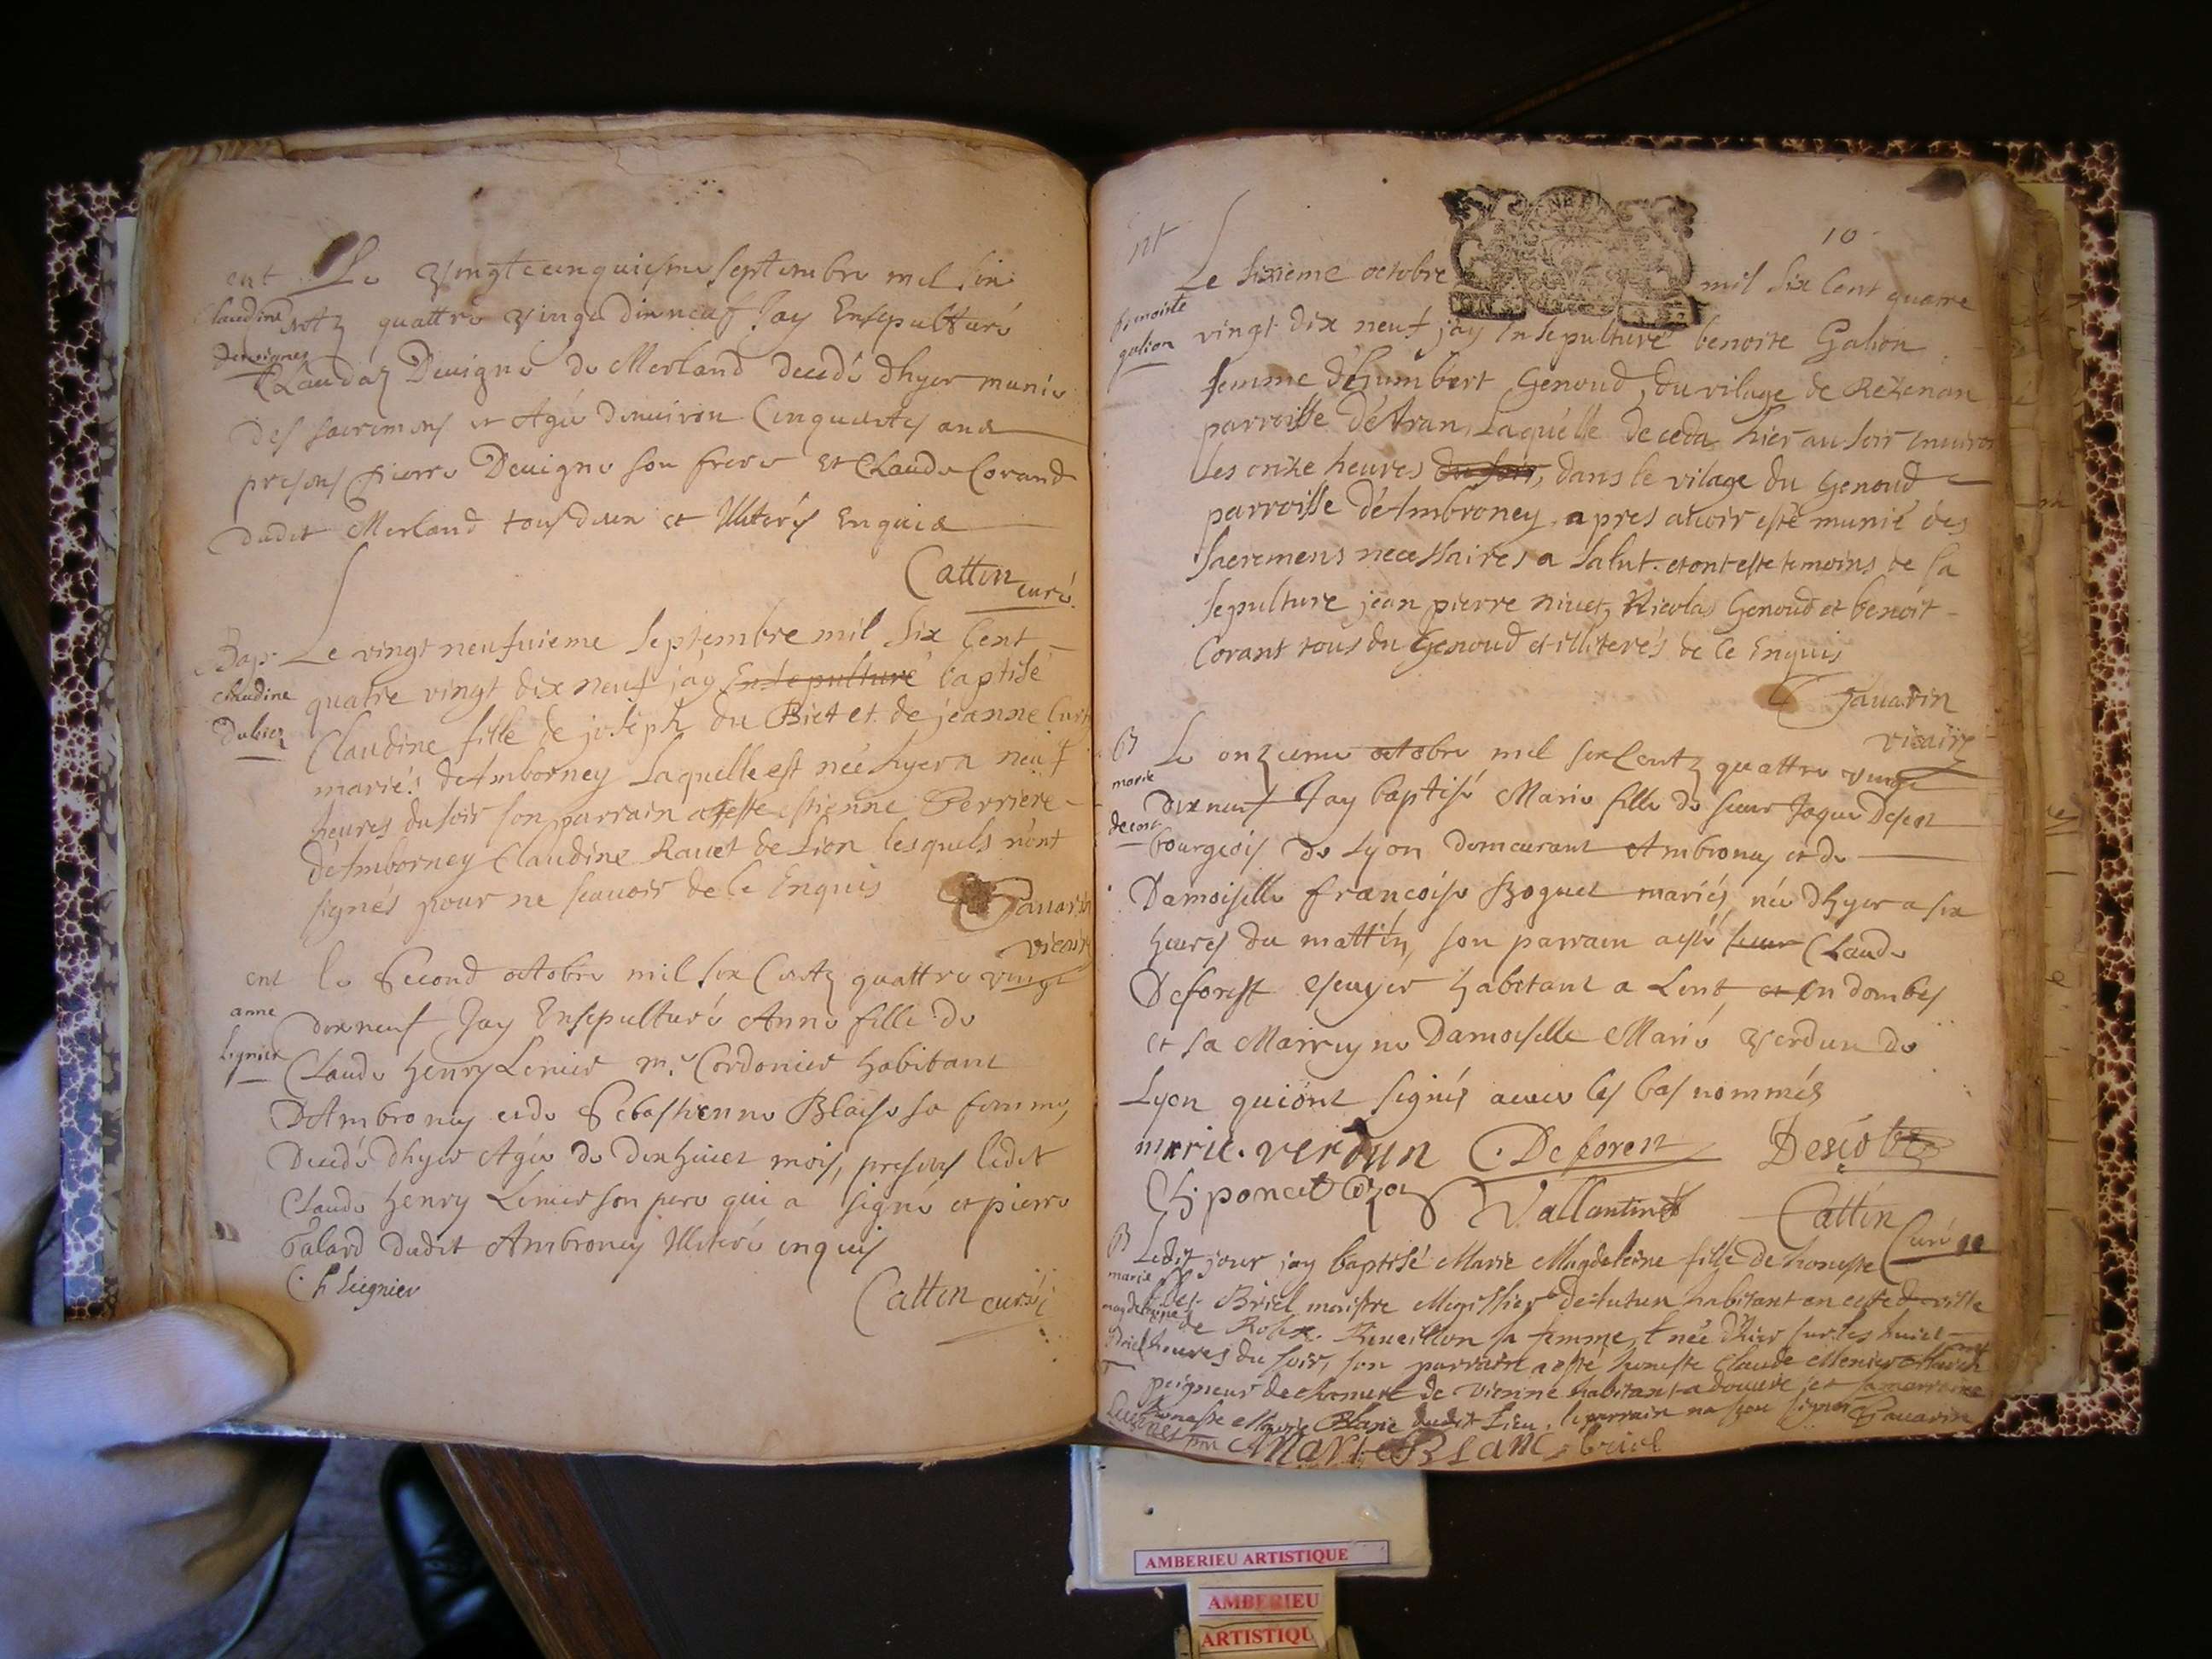 ent
Claudine
Devignes
Le vingtcinquiesme septembre mil six
centz quattre vingt dixneuf Jay Ensepulturé
Claudaz Devigne de Merland decedé dhyer munie
des sacremens et Agée denviron Cinquante ans
presens pierre Devigne son frere et Claude Corand
dudit Merland tous deux et Illiterés Enquis
Cattin curé
Bap.
claudine
Dubiez
Le vingt neufuieme septembre mil six Cent
quatre vingt dix neuf j'ay Ensepulturé baptisé
Claudine fille de joseph du Biet et de jeanne
mariés d'Amborney Laquelle est neé hyer a neuf
heures du soir son parrain a esté estienne Perriere
d'Amborney Claudine Ravet de Lion lesquels n'ont
signés pour ne scavoir de Ce Enquis
Savarin
vicaire
ent
anne
Lignier
le Second octobre mil six Centz quattre vingt
dixneuf Jay Ensepulturé Anne fille de
Claude Henry Lenier m.e Cordonier habitant
D'Ambroney et de Sebastienne Blaise sa femme,
Decedé dhyer Agée de dix huict mois, presens ledit
Claude Henry Lenier son pere qui a signé et pierre
Palard dudit Ambroney Illiteré enquis
C. h Leignier
Cattin curé
10
nt
benoiste
galion
Le sixieme octobre mil six Cent quatre
vingt dix neuf j'ay Ensepulturé benoite Galion
femme d'humbert Genoud, du vilage de Rezenan
parroisse d'Aran, Laquelle deceda hier au soir environ
les onze heures du soir, dans le vilage du Genoud
parroisse d'Ambroney apres avoir esté munie des
sacremens necessaires a salut. et ont este temoins de sa
sepulture jean pierre nivet, Nicolas Genoud et benoit
Corant tous du Genoud et illiterés de Ce Enquis
Savarin
vicaire
B
marie
Le onzieme octobre mil six Centz quattre vingt
dixneuf Jay baptisé Marie fille de sieur Jaque Descot
bourgeois de Lyon demeurant Ambroney et de
Damoiselle francoise Boguet mariés née dhyer a six
heures du mattin, son parrain a esté sieur Claude
Deforest escuyer habitant a Lent, et en dombes
et sa Marreyne Damoiselle Marie Verdun de
Lyon qui ont signés avec les bas nommés
marie. verdun C. Deforest
Ch poncet
Vallantin
Cattin Curé
B
marie
magdeleine
Briel
Ledit jour jay baptisé Marie Magdeleine fille de honeste
Briel maistre Megissier habitant en cette ville
de Revillon sa femme, née d'hier sur les huict
heures du soir, son parrain a esté honeste Claude Menier
peigneur de chanvre de Vienne habitant a et sa marreine
honeste Marie Blanc dudit Lieu. le parrain na sceu signer Savarin
Marie Blanc briel
AMBERIEU ARTISTIQUE
AMBERIEU
ARTISTIQU